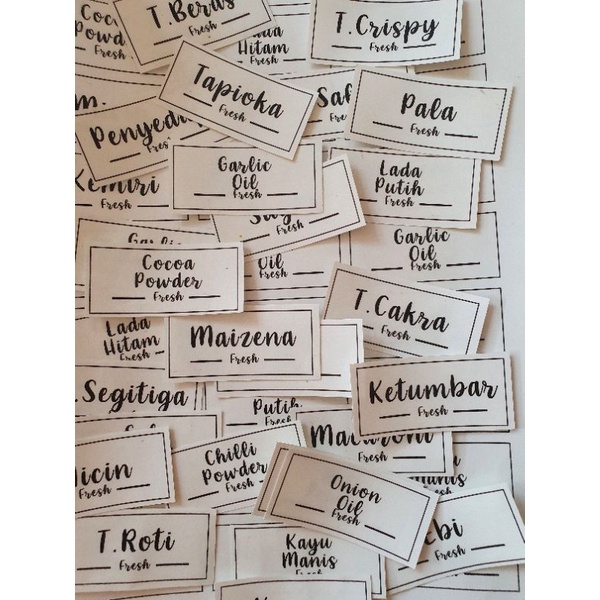 T. Beras
Fresh
T.Crispy
Fresh
Powd
Hitam
Fresh
Tapioka
Fresh
Pala
Fresh
Fresh
Garlic
Oil
Fresh
Lada
Putih
Fresh
Kemiri
Garlic
Oil
Fresh
Cocoa
Powder
Fresh
Oil
Fresh
T.Cakra
Fresh
Lada
Hitam
Fresh
Maizena
Fresh
Ketumbar
Fresh
.Segitiga
Fresh
Putih
Fresh
Macaroni
icin
Fresh
Chilli
Powder
Fresh
Onion
Oil
Fresh
T.Roti
Fresh
Kayu
Manis
Fresh
ebi
Fresh